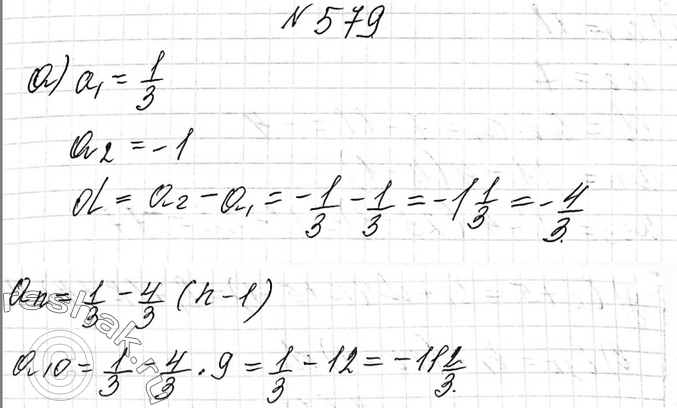 № 579
а) a₁ = 1/3
a₂ = -1
d = a₂ - a₁ = -1/3 - 1/3 = -1 1/3 = -4/3.
aₙ = 1/3 - 4/3 (n-1)
a₁₀ = 1/3 - 4/3 · 9 = 1/3 - 12 = -11 2/3.